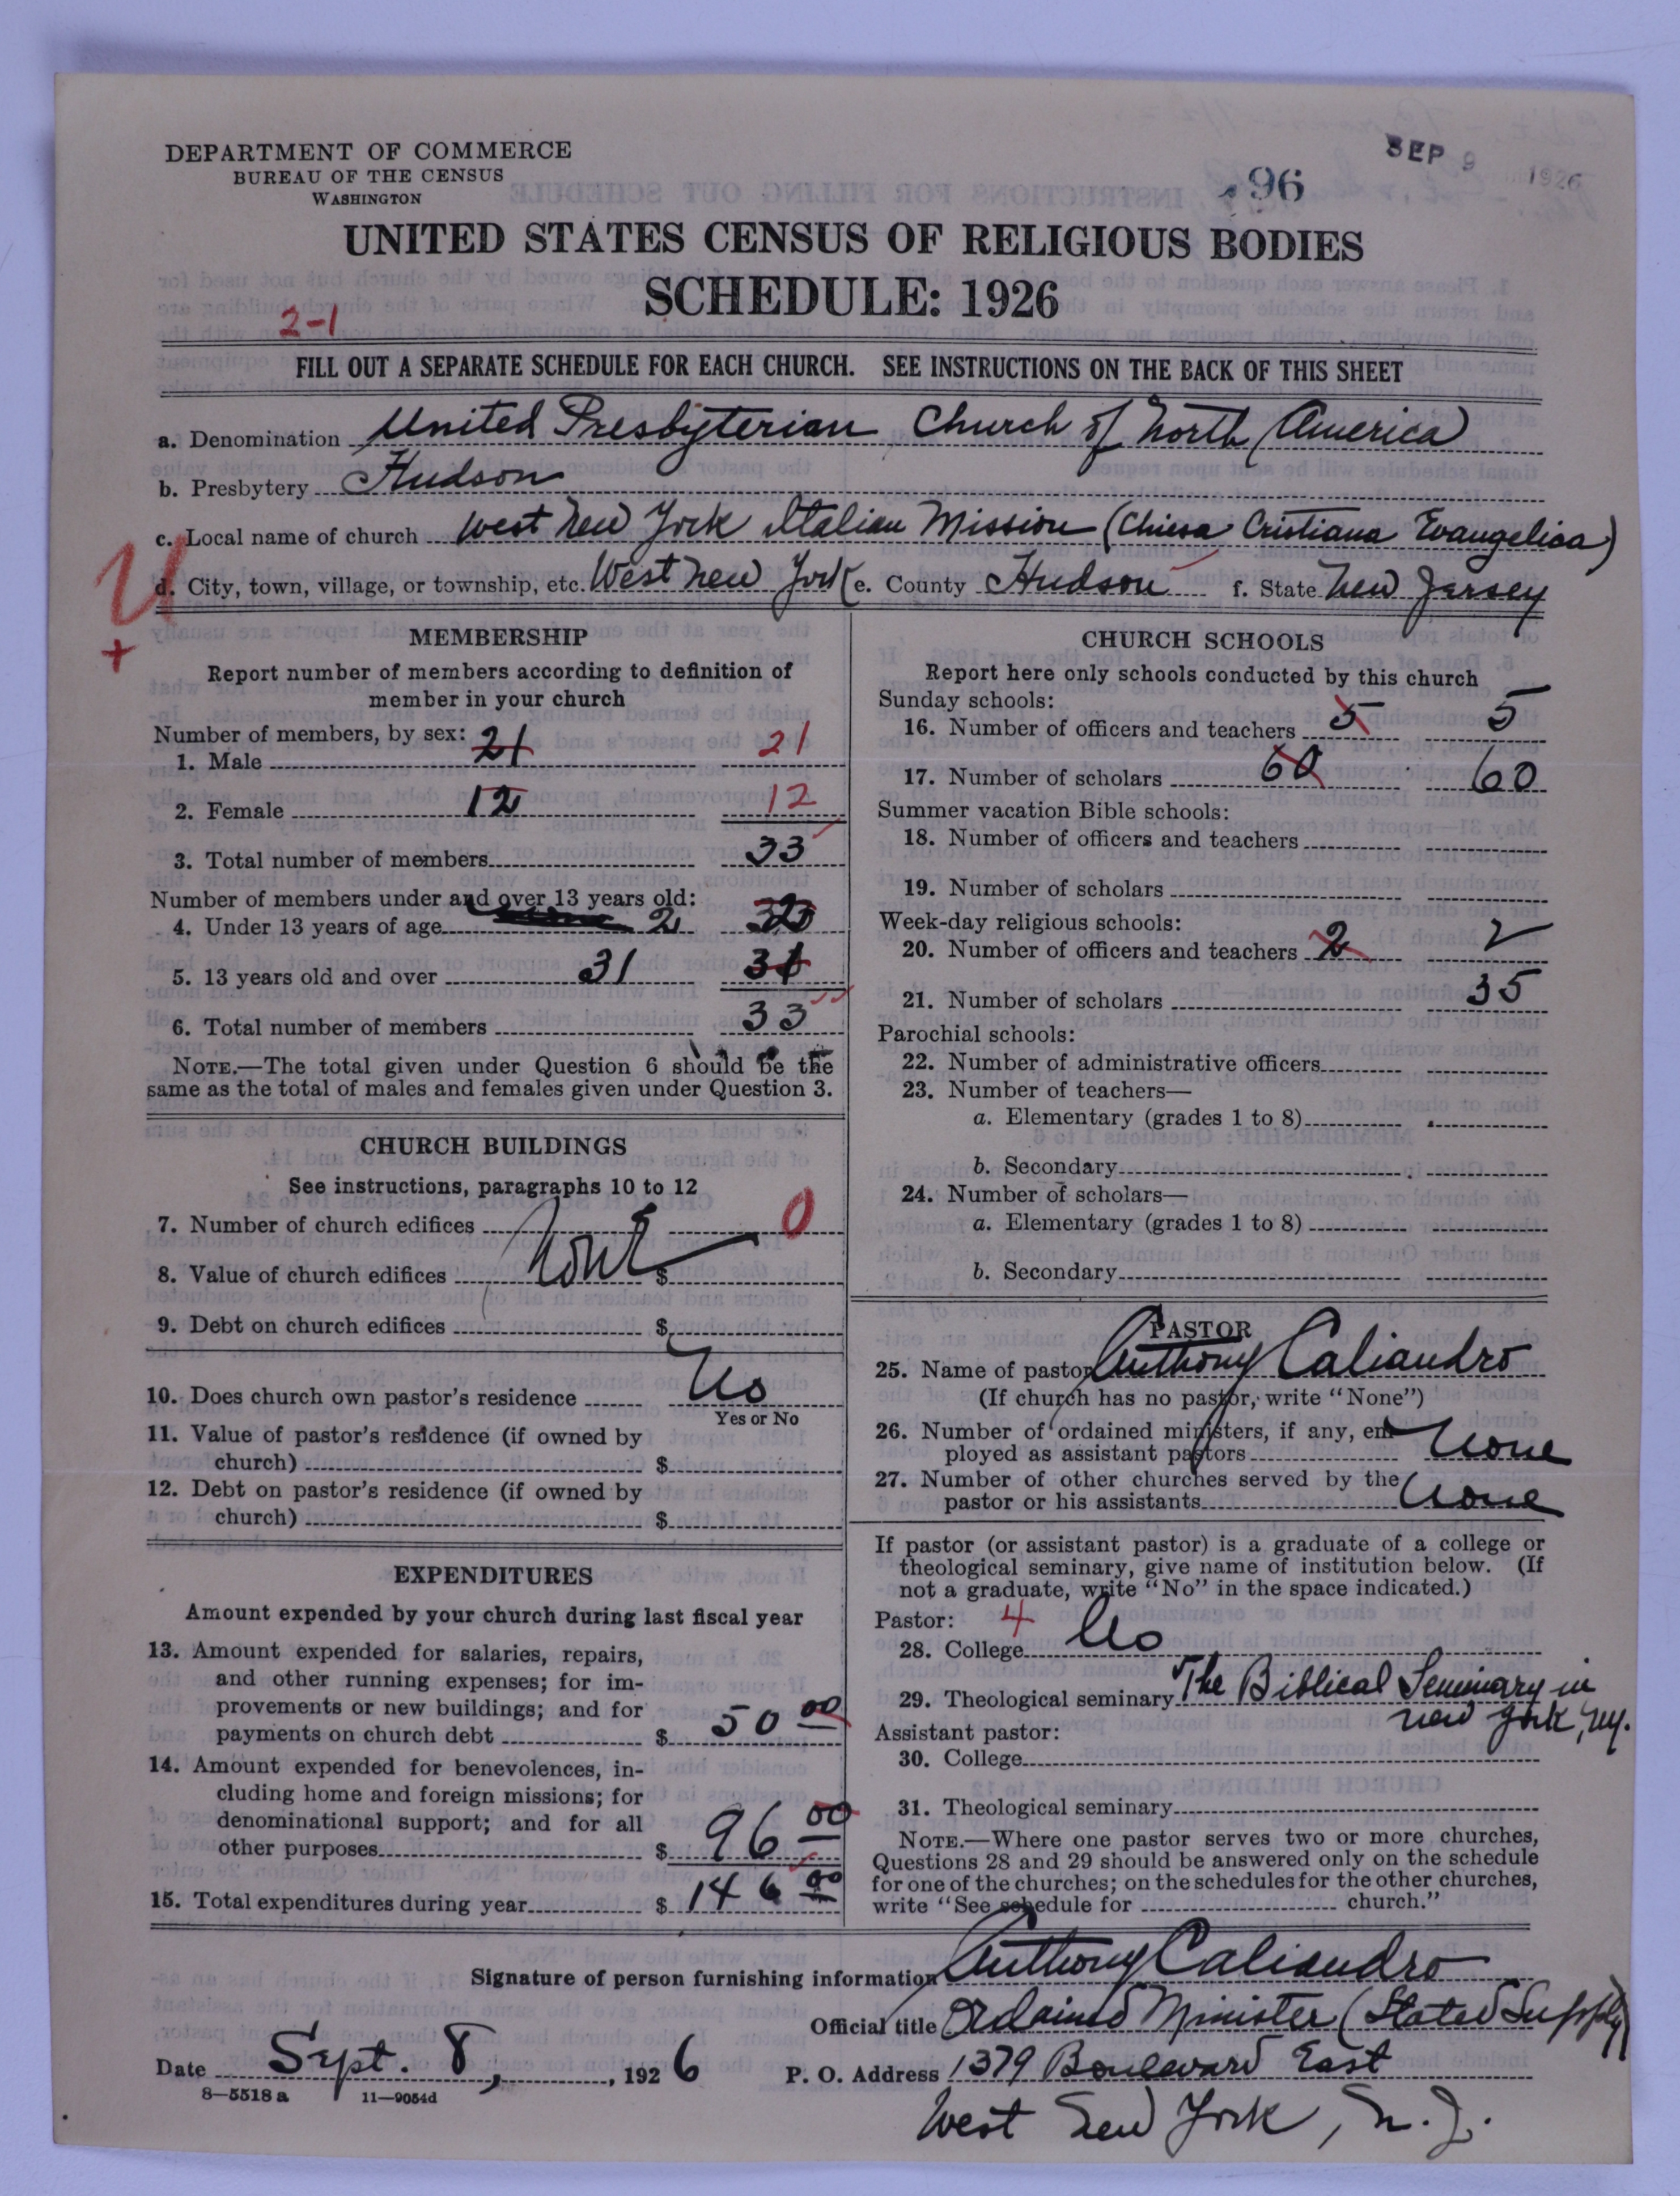 DEPARTMENT OF COMMERCE
BUREAU OF THE CENSUS
WASHINGTON
SEP 9 1926
96
UNITED STATES CENSUS OF RELIGIOUS BODIES
SCHEDULE: 1926
2-1
FILL OUT A SEPARATE SCHEDULE FOR EACH CHURCH. SEE INSTRUCTIONS ON THE BACK OF THIS SHEET
a. Denomination United Presbyterian Church of North America
b. Presbytery Hudson
c. Local name of church West New York Italian Mission (Chiesa Cristiana Evangelica)
d. City, town, village, or township, etc. West New York e. County Hudson f. State New Jersey
U
+
MEMBERSHIP
Report number of members according to definition of
member in your church
Number of members, by sex:
1. Male 21 21
2. Female 12 12
3. Total number of members 33
Number of members under and over 13 years old:
4. Under 13 years of age 2
5. 13 years old and over 31 31
6. Total number of members 33
NOTE.—The total given under Question 6 should be the
same as the total of males and females given under Question 3.
CHURCH BUILDINGS
See instructions, paragraphs 10 to 12
7. Number of church edifices None 0
8. Value of church edifices $
9. Debt on church edifices $
10. Does church own pastor's residence No
Yes or No
11. Value of pastor's residence (if owned by
church) $
12. Debt on pastor's residence (if owned by
church) $
EXPENDITURES
Amount expended by your church during last fiscal year
13. Amount expended for salaries, repairs,
and other running expenses; for im-
provements or new buildings; and for
payments on church debt $ 50 00
14. Amount expended for benevolences, in-
cluding home and foreign missions; for
denominational support; and for all
other purposes $ 96 00
15. Total expenditures during year $ 146 00
CHURCH SCHOOLS
Report here only schools conducted by this church
Sunday schools:
16. Number of officers and teachers 5 5
17. Number of scholars 60 60
Summer vacation Bible schools:
18. Number of officers and teachers
19. Number of scholars
Week-day religious schools:
20. Number of officers and teachers 2 2
21. Number of scholars 35
Parochial schools:
22. Number of administrative officers
23. Number of teachers—
a. Elementary (grades 1 to 8)
b. Secondary
24. Number of scholars—
a. Elementary (grades 1 to 8)
b. Secondary
PASTOR
25. Name of pastor Anthony Caliandro
(If church has no pastor, write "None")
26. Number of ordained ministers, if any, em-
ployed as assistant pastors None
27. Number of other churches served by the
pastor or his assistants None
If pastor (or assistant pastor) is a graduate of a college or
theological seminary, give name of institution below. (If
not a graduate, write "No" in the space indicated.)
Pastor: 4
28. College No
29. Theological seminary The Biblical Seminary in
New York, N.Y.
Assistant pastor:
30. College
31. Theological seminary
NOTE.—Where one pastor serves two or more churches,
Questions 28 and 29 should be answered only on the schedule
for one of the churches; on the schedules for the other churches,
write "See schedule for church."
Signature of person furnishing information Anthony Caliandro
Official title Ordained Minister (Stated Supply)
Date Sept. 8, 1926 P. O. Address 1379 Boulevard East
8-5518 a 11-9054d
West New York, N. J.